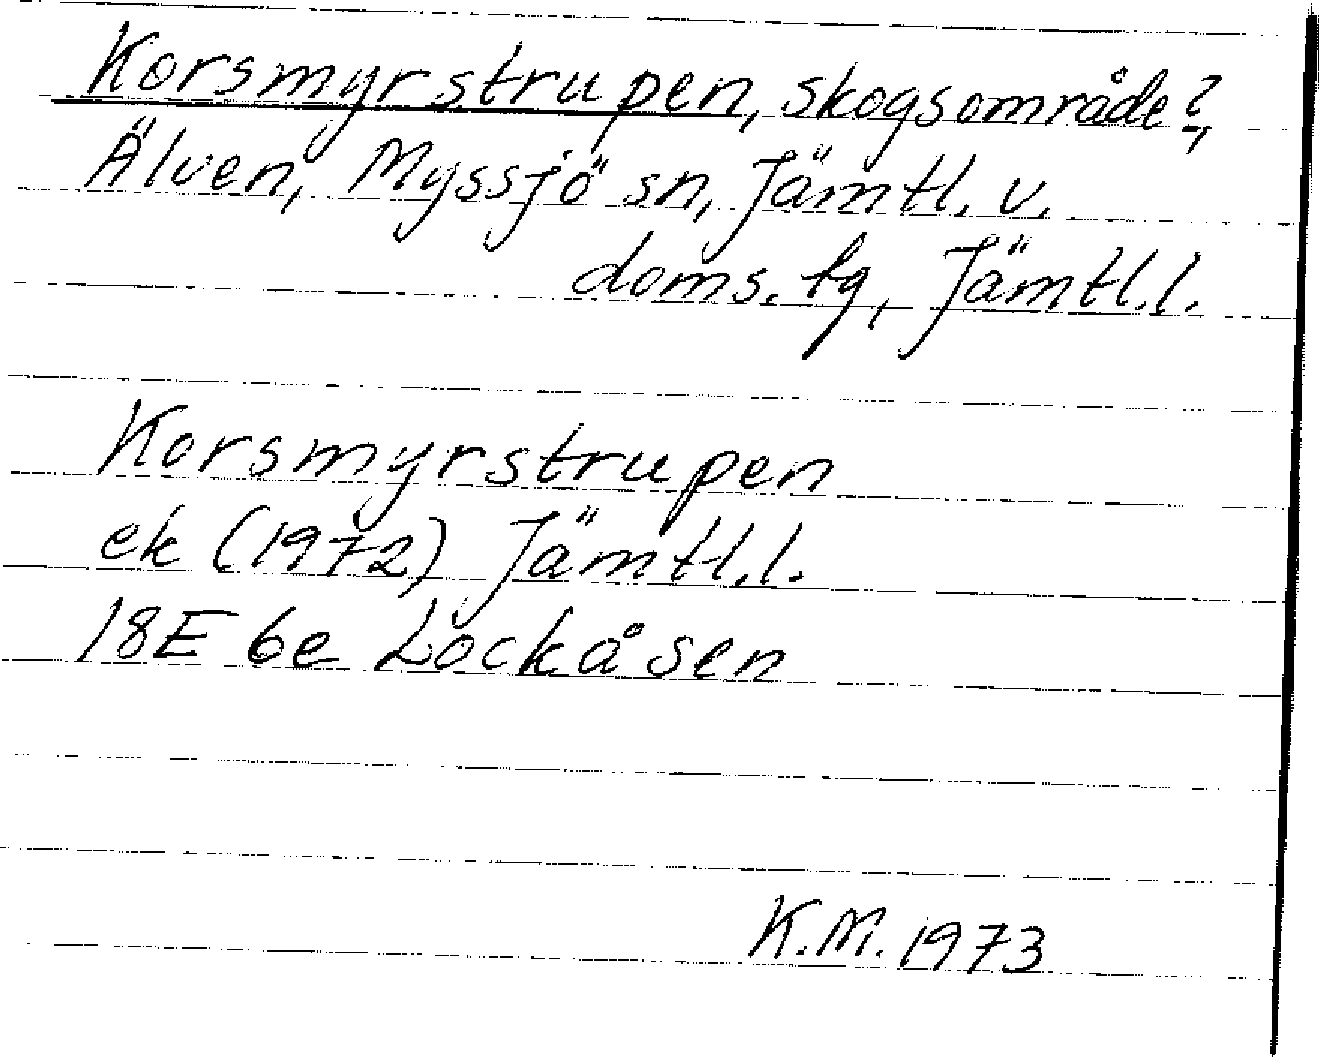 Korsmyrstrupen, skogsområde?,
Älven, Myssjö sn, Jämtl. v.
doms. tg, Jämtl.l.
Korsmyrstrupen
ek (1972) Jämtl.l.
18E 6e Lockåsen
K.M. 1973